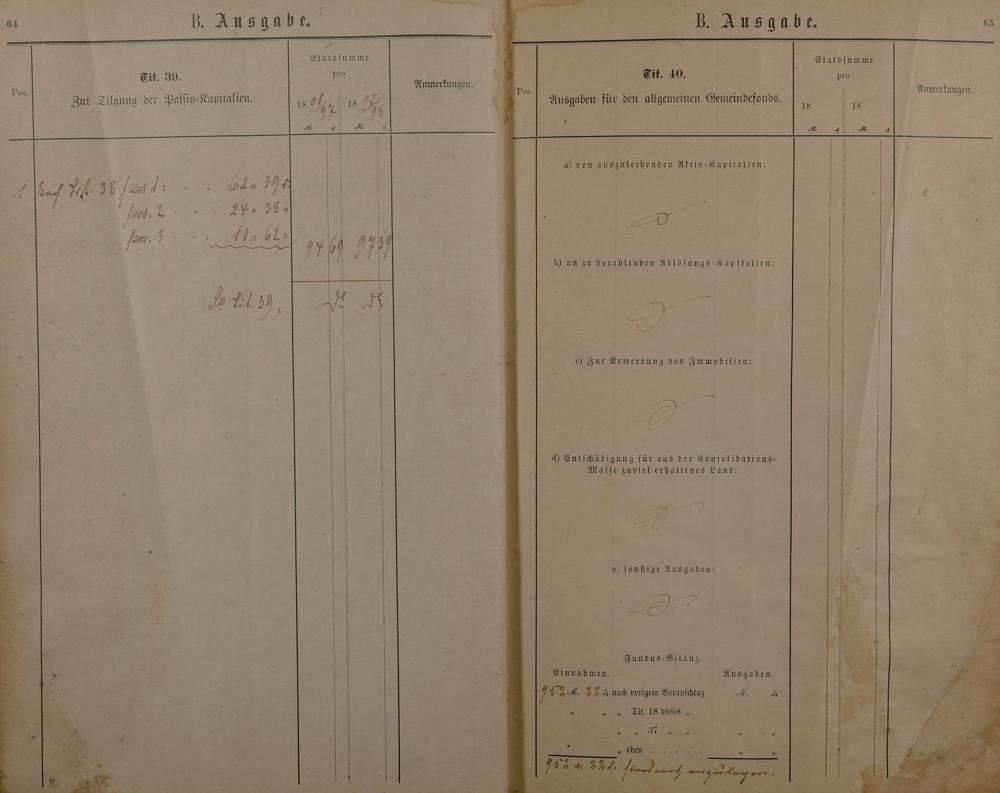 64
B. Ausgabe.
Pos.
Tit. 39.
Zur Tilgung der Passiv-Kapitalien.
Etatssumme
pro
18 96/97 18 97/98
M. ₰ M. ₰
Anmerkungen.
1 Nach Tit. 38 pos. 1: . . 62 M 39 ₰
pos. 2 . . . 24 " 38 "
pos. 3 . . . 10 " 62 "
94 69 97 39
Sa. Tit. 39.
65
B. Ausgabe.
Pos.
Tit. 40.
Ausgaben für den allgemeinen Gemeindefonds.
Etatssumme
pro
18 18
M. ₰ M. ₰
Anmerkungen.
a) von auszuleihenden Aktiv-Kapitalien:
b) an zu bezahlenden Ablösungs-Kapitalien:
c) Zur Erwerbung von Immobilien:
d) Entschädigung für aus der Konsolidations-
Masse zuviel erhaltenes Land:
e) sonstige Ausgaben:
Fundus-Bilanz.
Einnahmen. Ausgaben.
952 M. 22 ₰ nach vorigem Voranschlag M. ₰
" " " Tit. 18 dieses "
" " 37 " " " "
" oben . . . . . " "
952 M. 22 ₰ sind noch anzulegen.